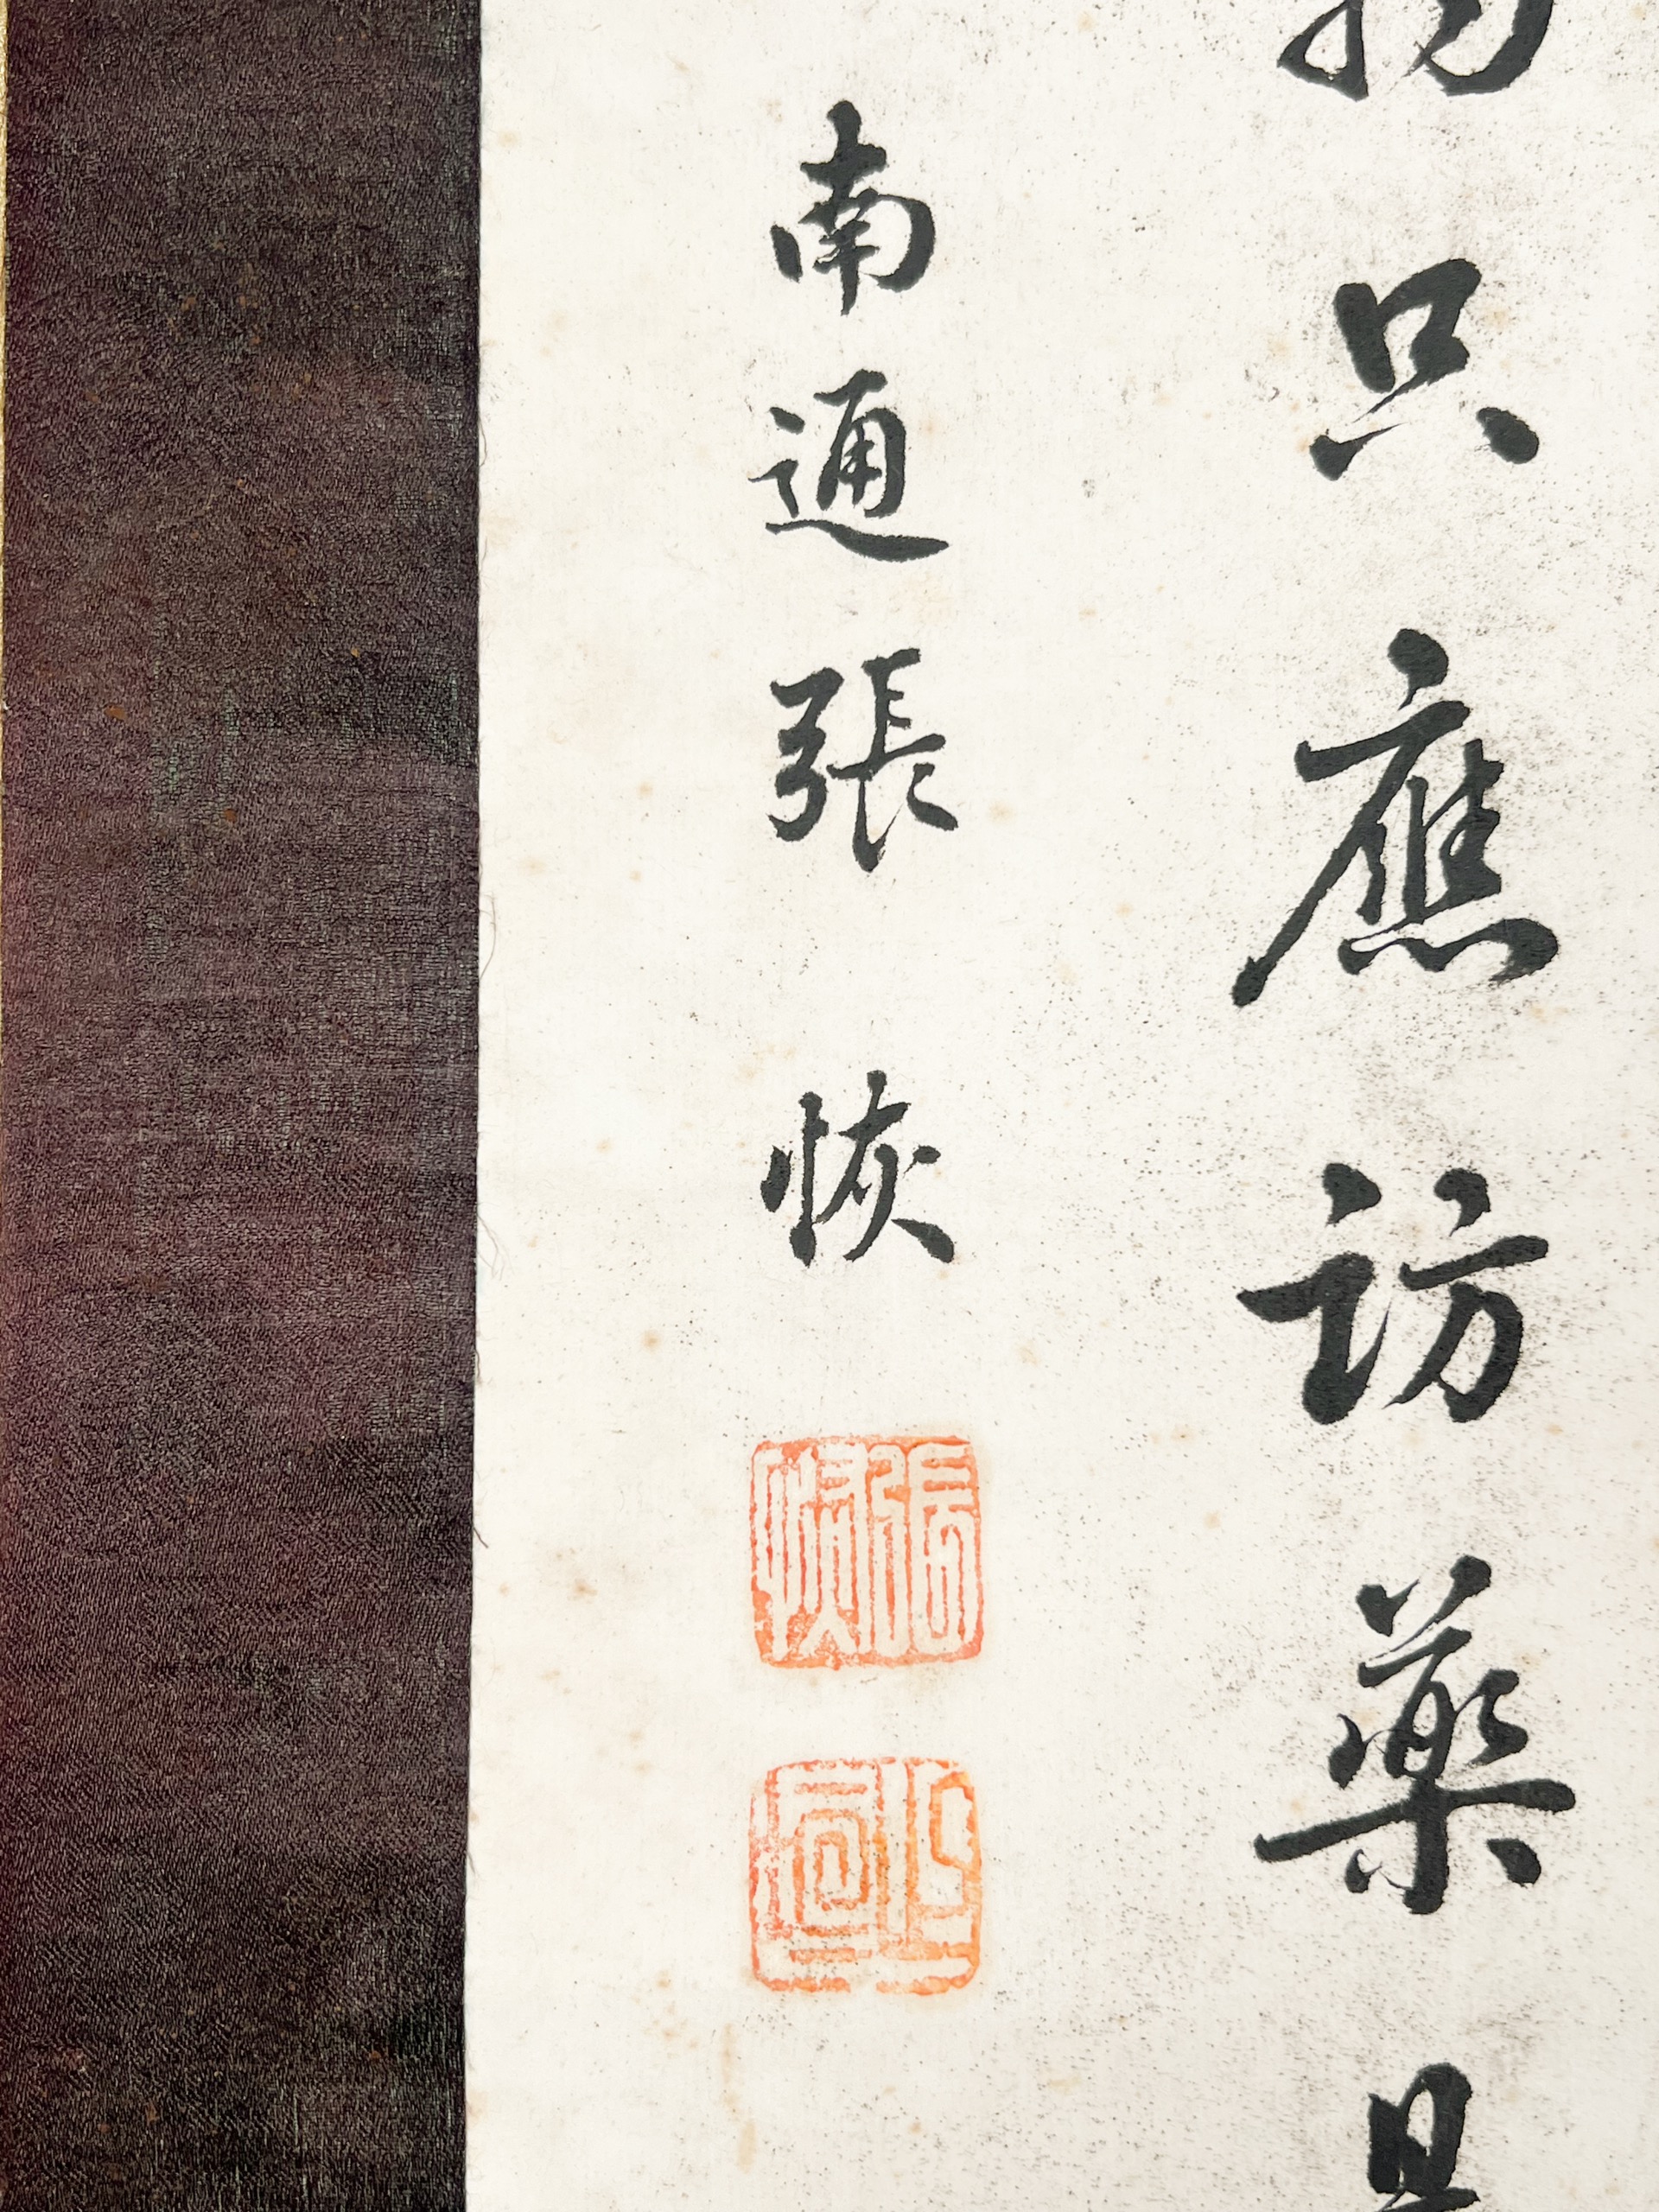 只應訪藥
南通張恢
張恢